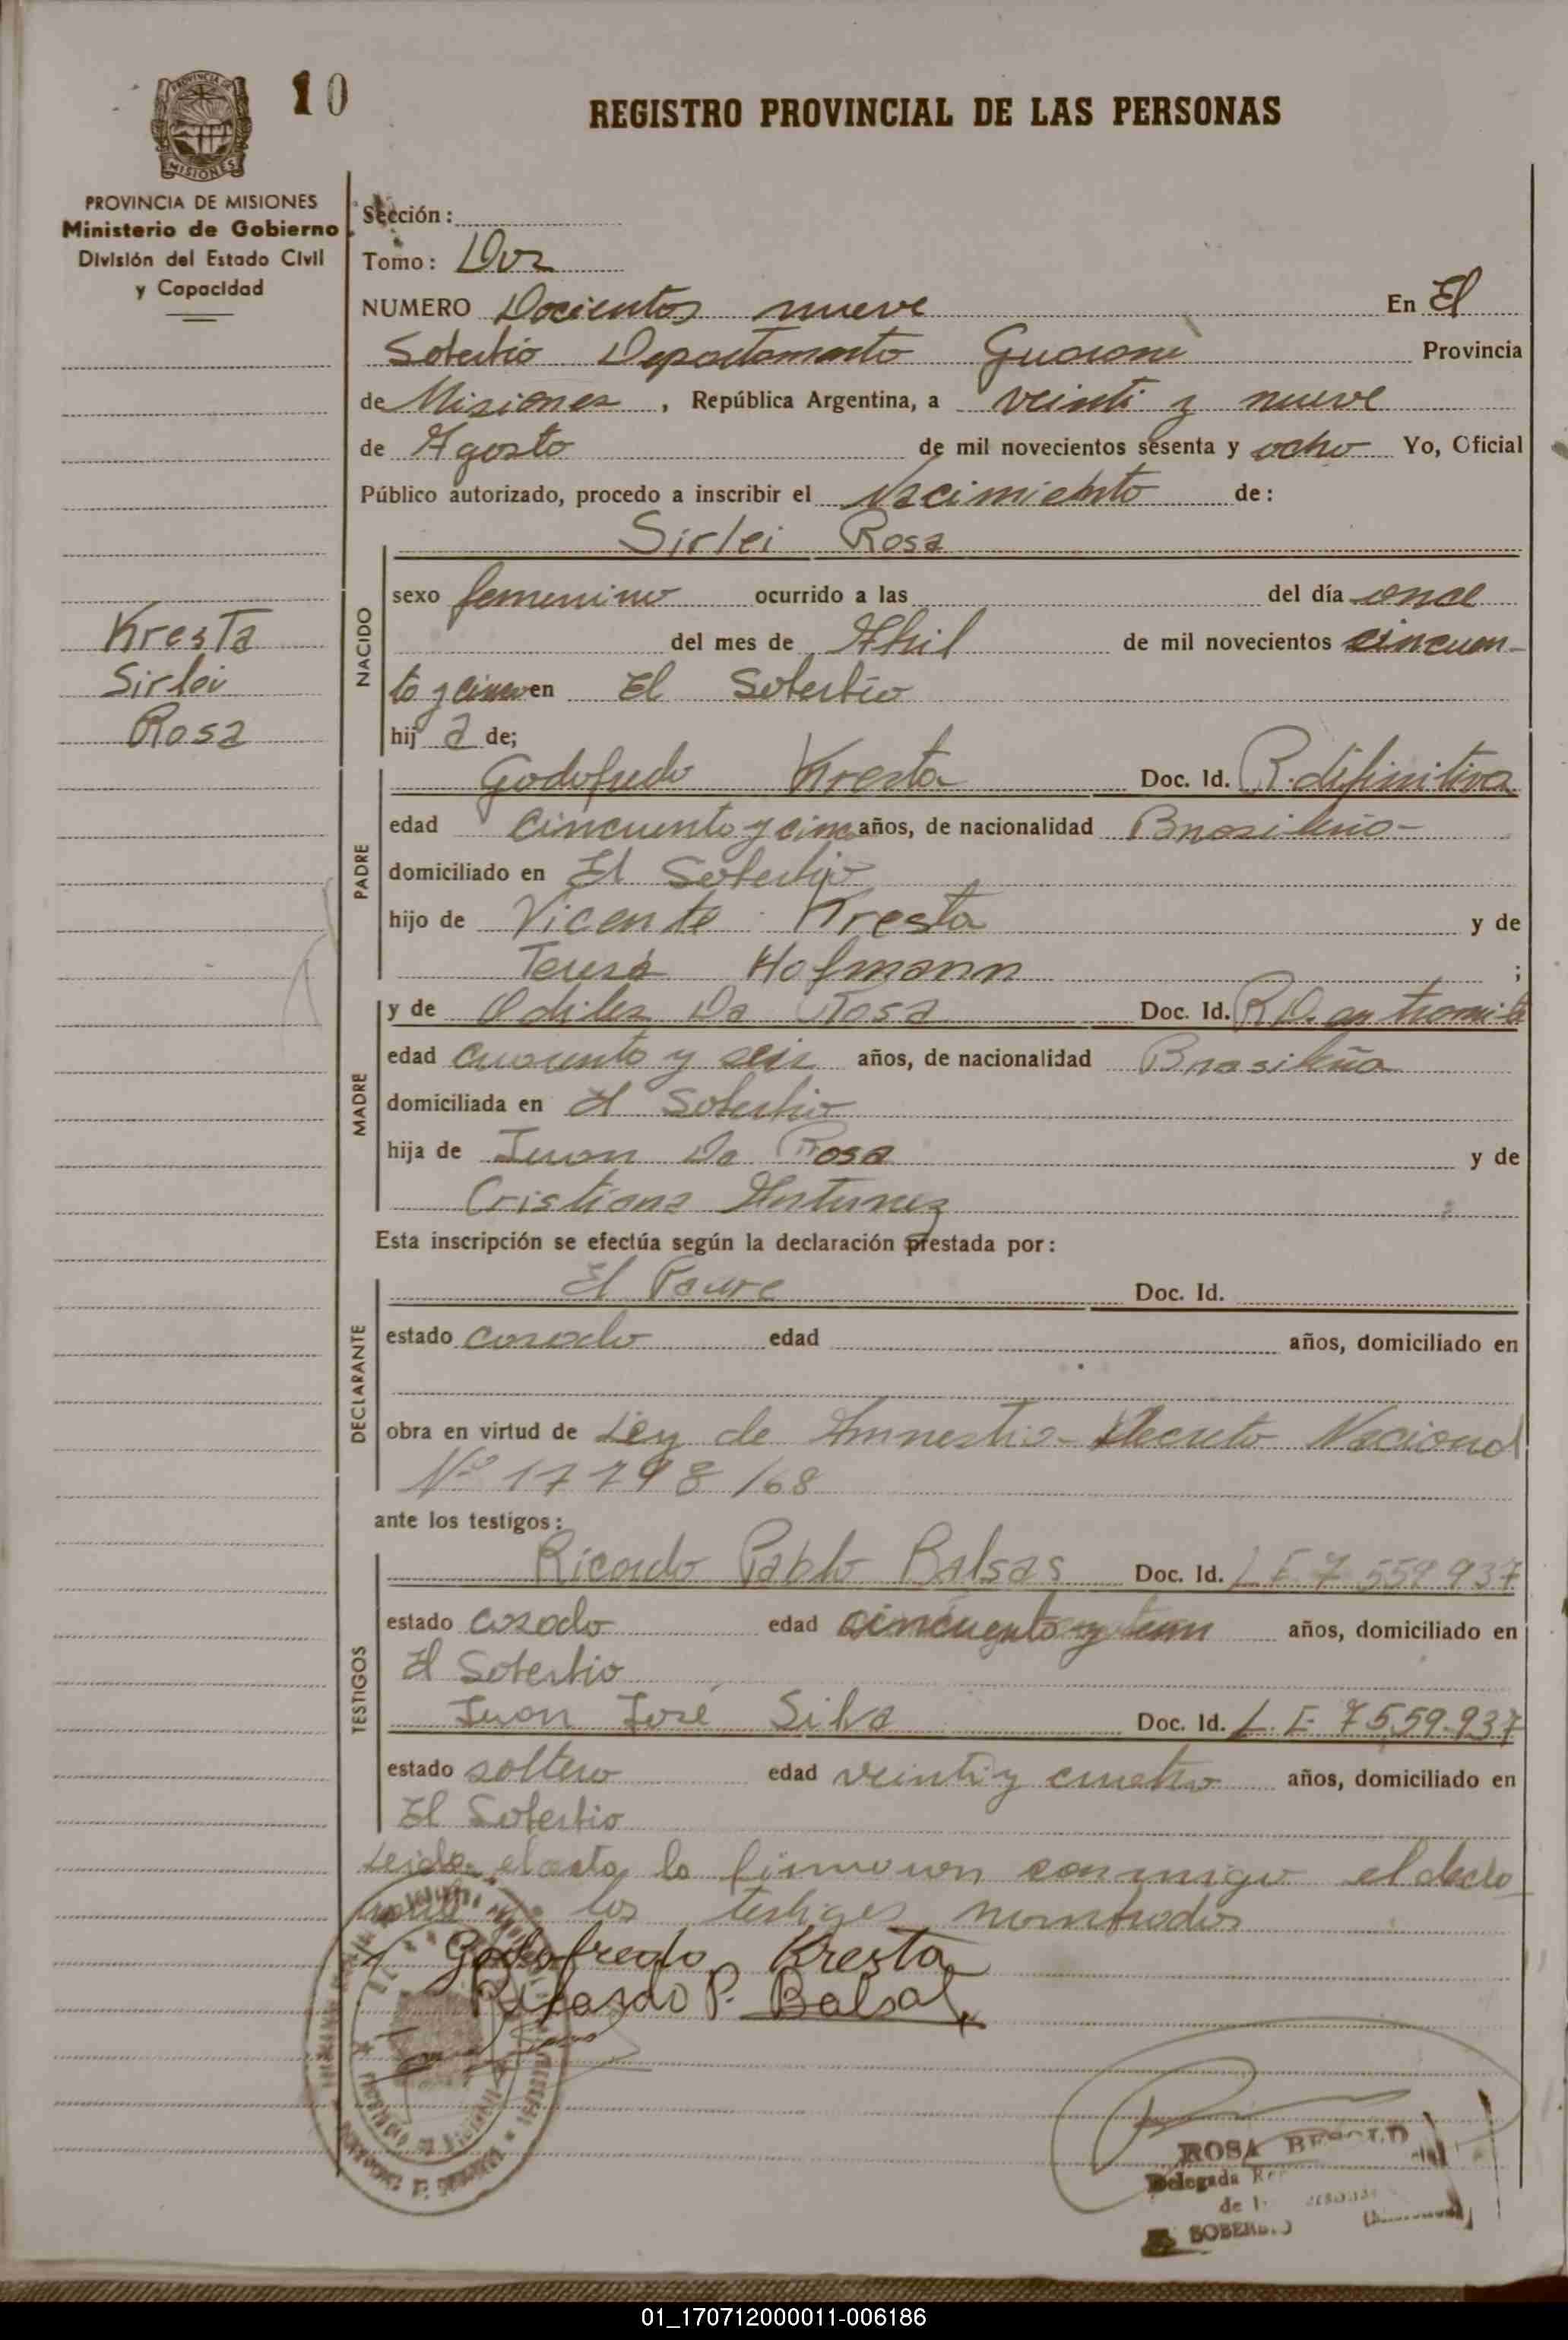 10
REGISTRO PROVINCIAL DE LAS PERSONAS
PROVINCIA DE MISIONES
Ministerio de Gobierno
División del Estado Civil
y Capacidad
Sección:
Tomo: Dos
NUMERO Docientos nueve En El
Soberbio Departamento Guarani Provincia
de Misiones, República Argentina, a veinti y nueve
de Agosto de mil novecientos sesenta y ocho Yo, Oficial
Público autorizado, procedo a inscribir el Nacimiento de:
Sirlei Rosa
NACIDO
sexo femenino ocurrido a las del día once
del mes de Abril de mil novecientos cincuen-
ta y cinco en El Soberbio
hij a de;
Kresta
Sirlei
Rosa
PADRE
Godofredo Kresta Doc. Id. R. definitiva
edad cincuenta y cinco años, de nacionalidad Brasileño-
domiciliado en El Soberbio
hijo de Vicente Kresta y de
Teresa Hofmann ;
MADRE
y de Odiles Da Rosa Doc. Id. R.D. en tramite
edad cuarenta y seis años, de nacionalidad Brasileña
domiciliada en El Soberbio
hija de Juan Da Rosa y de
Cristiana Antunez
Esta inscripción se efectúa según la declaración prestada por:
DECLARANTE
El Padre Doc. Id.
estado casado edad años, domiciliado en
obra en virtud de Ley de Amnestia- Decreto Nacional
Nº 17798/68
ante los testigos:
TESTIGOS
Ricardo Pablo Balsas Doc. Id. L E 7 559 937
estado casado edad cincuenta y años, domiciliado en
El Soberbio
Juan José Silva Doc. Id. L. E 7559.937
estado soltero edad veinti y cuatro años, domiciliado en
El Soberbio
Leida el acta la firmaron conmigo el decla
rante y los testigos nombrados
Godofredo Kresta
Ricardo P. Balsas
ROSA
Delegada
de
SOBERBIO
01_170712000011-006186